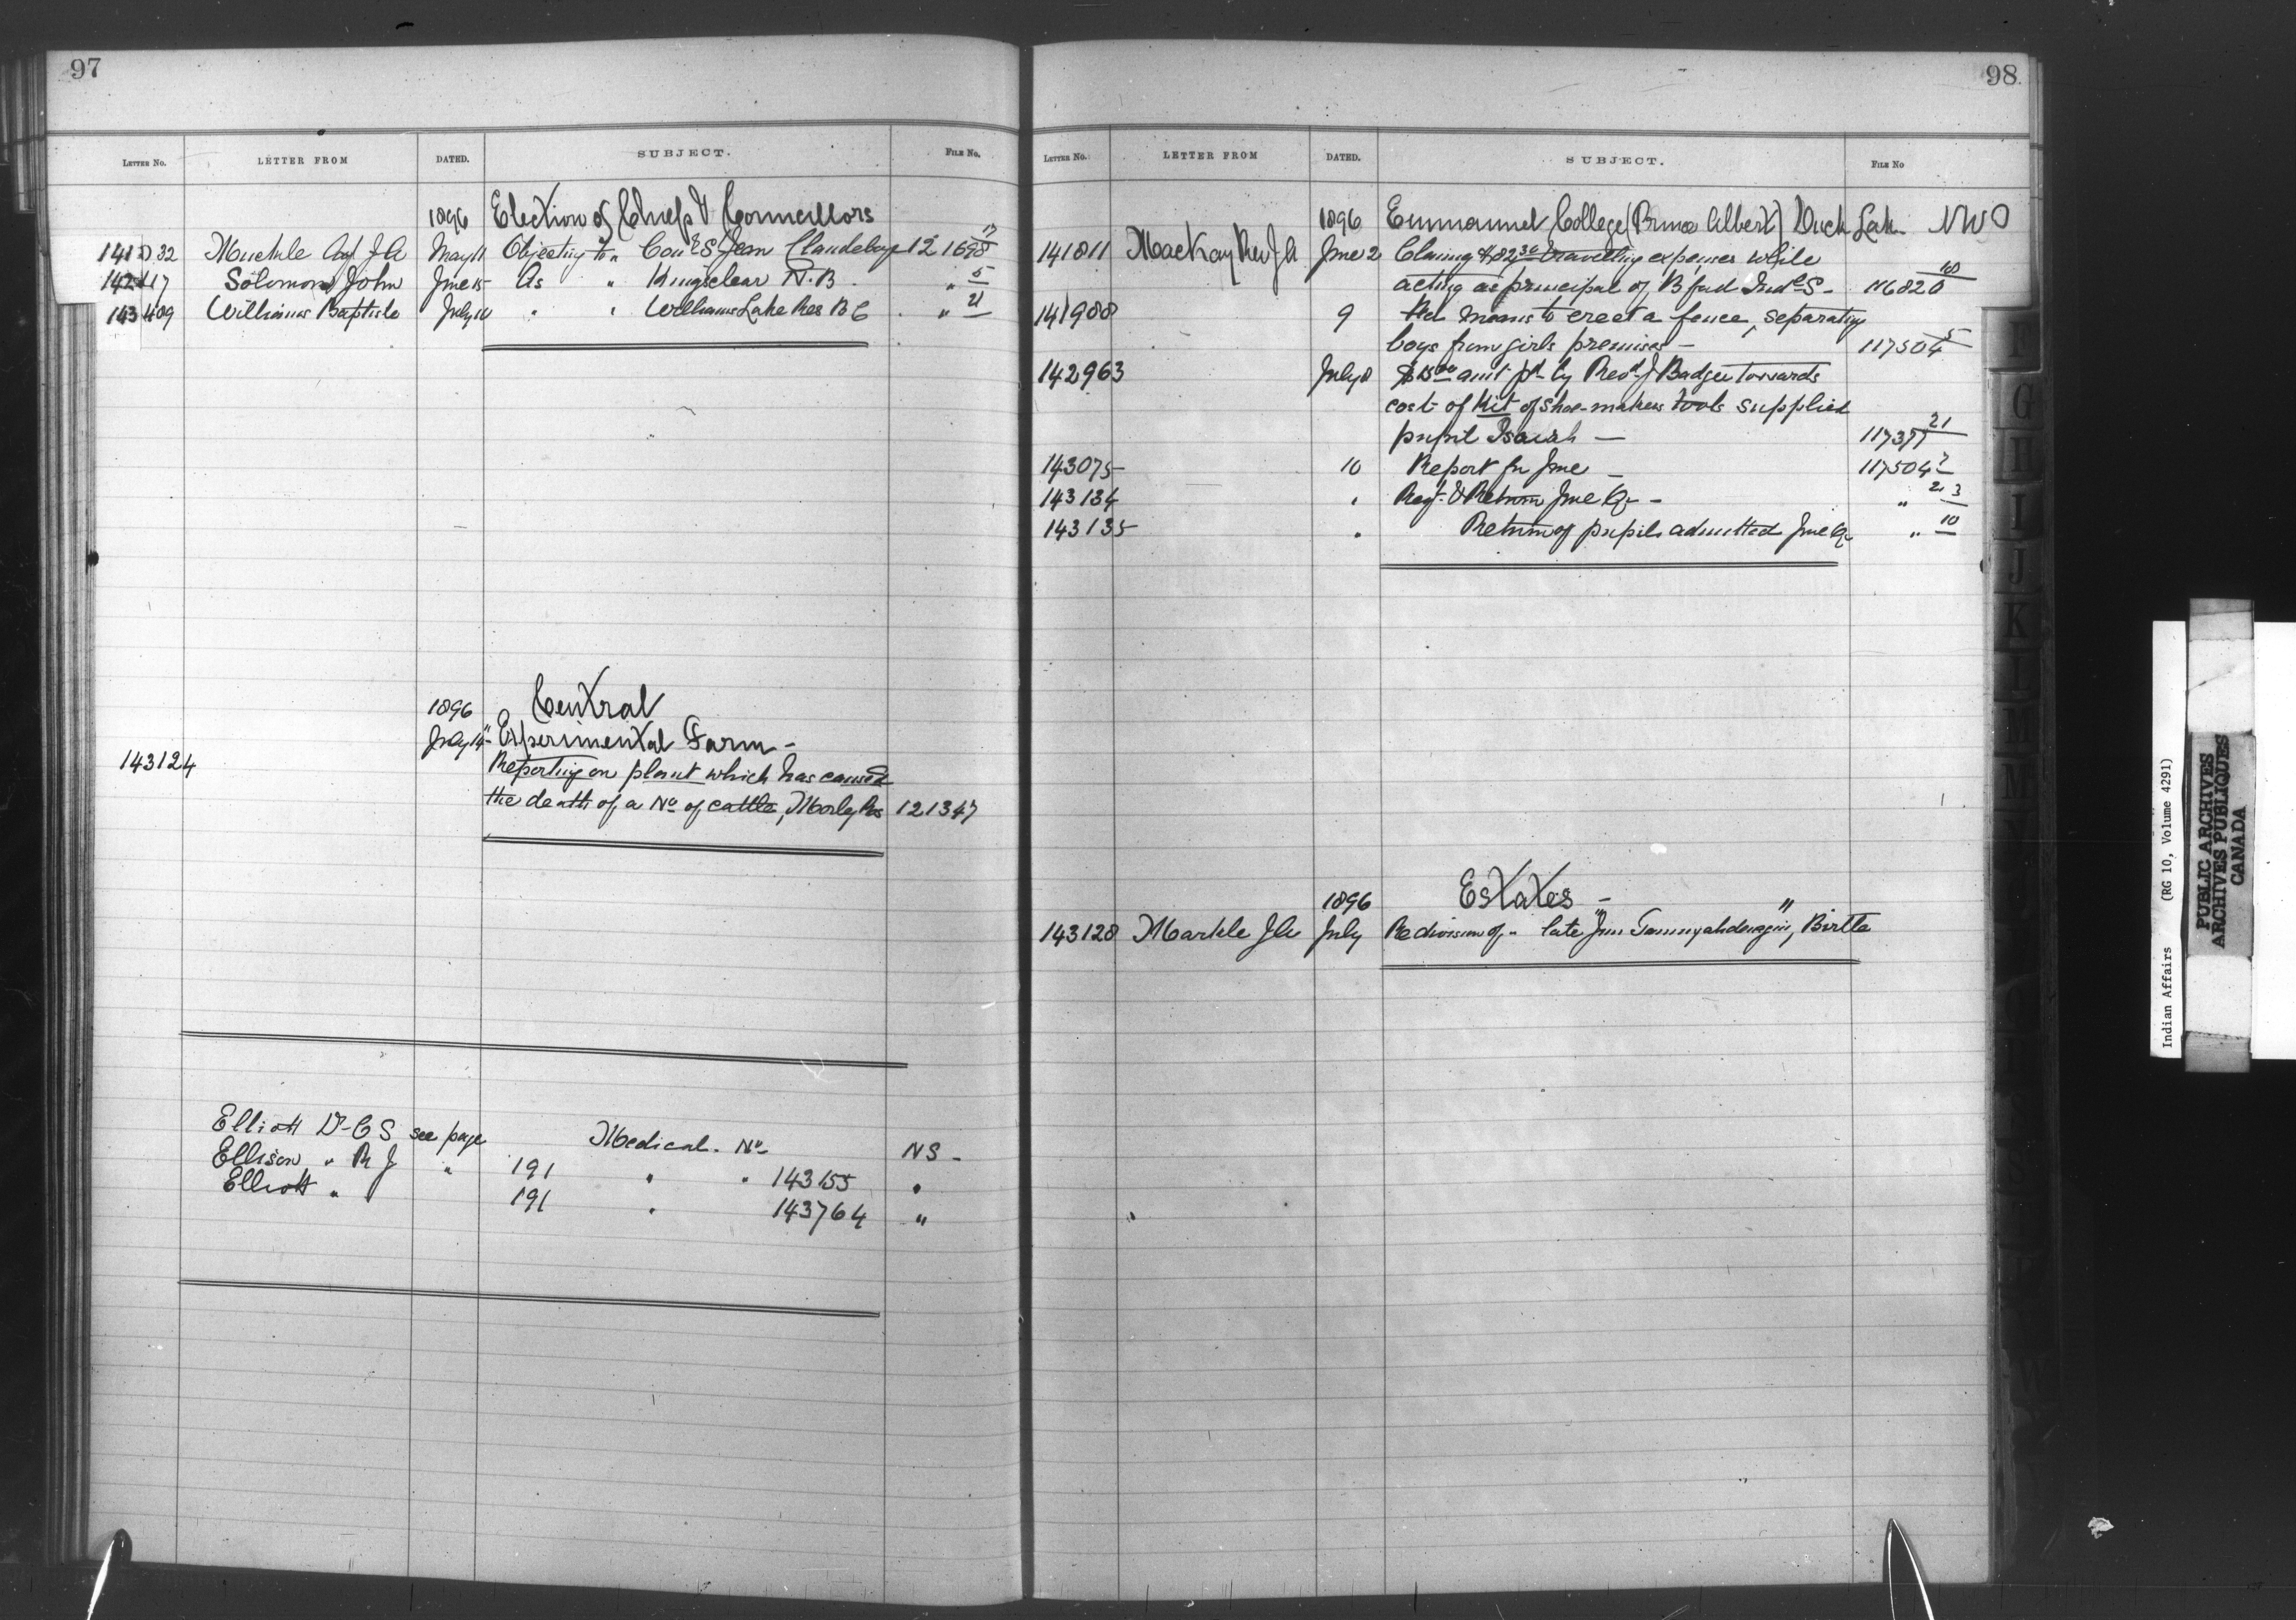 97
LETTER NO. LETTER FROM DATED. SUBJECT. FILE NO.
1896 Election of Chiefs & Councillors
Muckle Agt J A May 11 Objecting to " Coun S Jean Clandeboye 121698 17
Solomon John June 15 As " Kingsclear N.B. " 5
143409 Williams Baptiste July 10 " " Williams Lake Res B C " 21
1896 Central
July 14 Experimental Farm -
143124 Reporting on plant which has caused
the death of a No of cattle, Morley Res 121347
Elliott Dr C S see page Medical. No NS -
Ellison " R J " 191 " " 143155 "
Elliott " 191 " 143764 "
98
LETTER NO. LETTER FROM DATED. SUBJECT. FILE NO
1896 Emmanuel College (Prince Albert) Duck Lake NWT
141811 MacKay Rev J A June 2 Claiming $82 travelling expenses while
acting as principal of B ford Indl S - 116820 18
141988 9 means to erect a fence, separating
boys from girls premises - 117504 5
142963 July 8 $15.00 amt pd by Revd J Badger towards
cost of Kit of shoe-makers tools supplied
pupil Isaiah - 117377 21
143075 10 Report for June - 117504 7
143134 " Regt & Return June Qr - " 23
143135 " Return of pupils admitted June Qr " 10
1896 Estates -
143128 Markle J A July Re division of " late Jim , Birtle
Indian Affairs (RG 10, Volume 4291)
PUBLIC ARCHIVES
ARCHIVES PUBLIQUES
CANADA
G
H
I
J
K
L
M